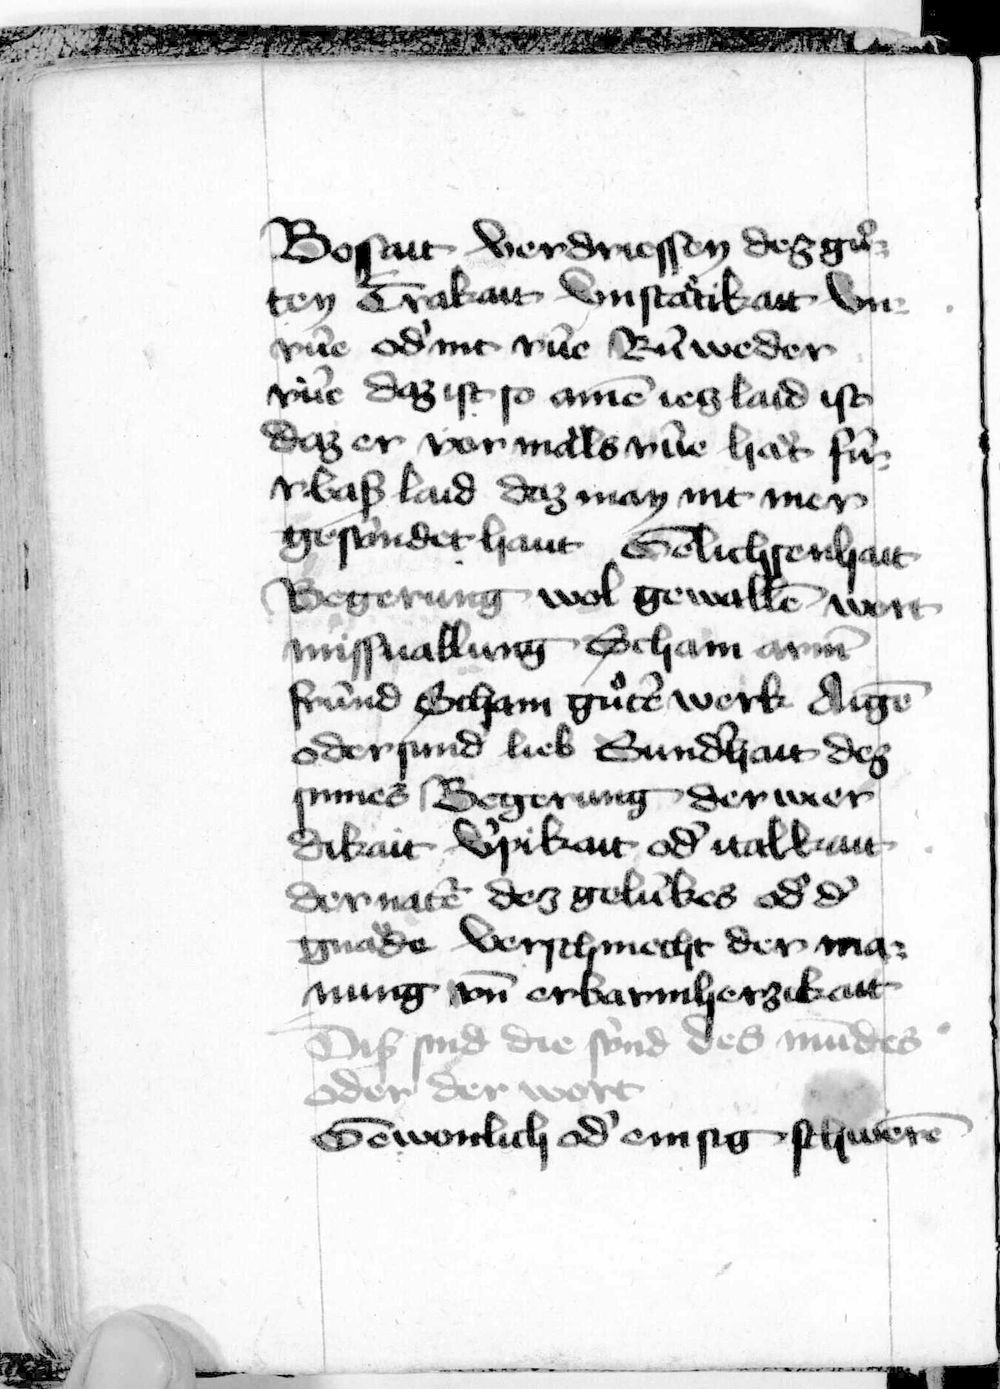 Boshait verdriessen dez guͦ-
ten Trakait Vnstätikait Vn-
rùe od' nit rùe Rùweder
rùe daz ist so ainē iez laid ist
daz er vor mäls rùe hät fù-
rbasz laid daz man nit mer
gesùndet haut Gelichsenhait
Begerung wol geuallē wort
missuallung Scham arm̄
frùnd Scham guͦtē werk Augē
oder sund lieb Sund'hait dez
sinnes Begerung der wier
dikait v̓pikait od' italkait
der natē dez gelùkes od' d'
gnäde Verschmecht der ma-
nung vn̄ erbarmherzikait
Disz sind die sùnd des mundes
oder der wort
Gewonlich od' emsig schwerē